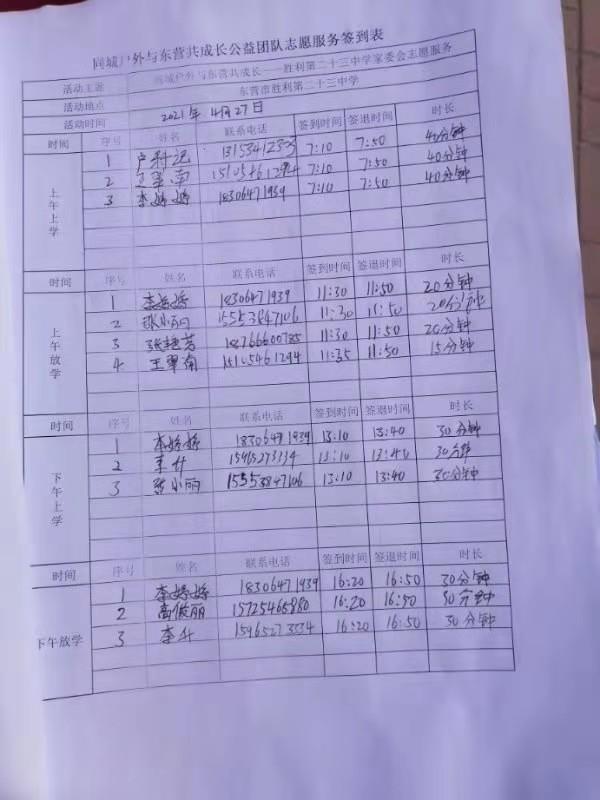 同城户外与东营共成长公益团队志愿服务签到表
活动主题 同城户外与东营共成长——胜利第二十三中学家委会志愿服务
活动地点 东营市胜利第二十三中学
活动时间 2021年4月27日
时间 序号 姓名 联系电话 签到时间 签退时间 时长
上午上学
1 7:10 7:50 40分钟
2 7:10 7:50 40分钟
3 李婷婷 18306471939 7:10 7:50 40分钟
时间 序号 姓名 联系电话 签到时间 签退时间 时长
上午放学
1 李婷婷 18306471939 11:30 11:50 20分钟
2 15553847106 11:30 11:50 20分钟
3 张艳芳 18766600785 11:30 11:50 20分钟
4 王翠南 15105461294 11:35 11:50 15分钟
时间 序号 姓名 联系电话 签到时间 签退时间 时长
下午上学
1 李婷婷 18306471939 13:10 13:40 30分钟
2 李升 13:10 13:40 30分钟
3 张小丽 15553847106 13:10 13:40 30分钟
时间 序号 姓名 联系电话 签到时间 签退时间 时长
下午放学
1 李婷婷 18306471939 16:20 16:50 30分钟
2 高俊丽 15725468880 16:20 16:50 30分钟
3 李升 16:20 16:50 30分钟